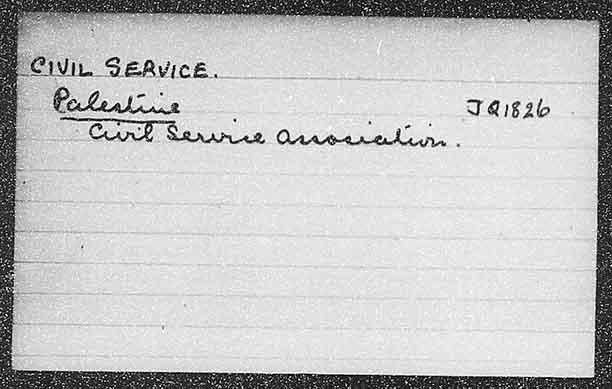 CIVIL SERVICE.
Palestine JQ1826
Civil Service Association.